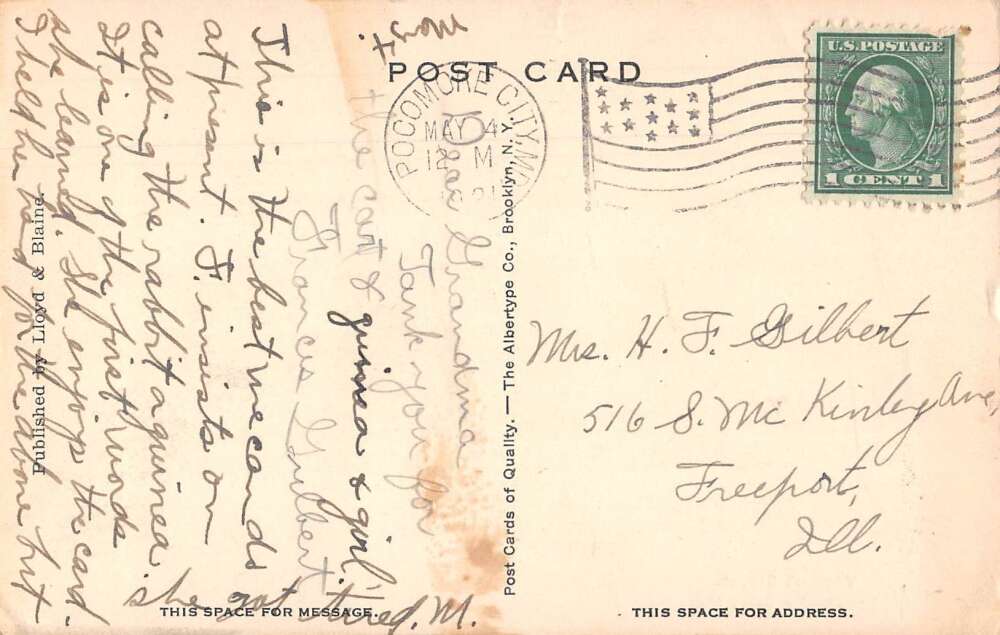 POST CARD
POCOMOKE CITY, MD.
MAY 4
12 M
U.S. POSTAGE
1 CENT 1
Dear Grandma
Tank you for
the card & guinea & girl.
Frances Gilbert
This is the best we can do
at present. F. insists on
calling the rabbit a guinea.
It is one of the first words
she learned. She enjoys the card.
I held her hand for the above but
she got tired. M.
Published by Lloyd & Blaine.
Post Cards of Quality. — The Albertype Co., Brooklyn, N. Y.
Mrs. H. F. Gilbert
516 S. Mc Kinley Ave,
Freeport,
Ill.
THIS SPACE FOR MESSAGE.
THIS SPACE FOR ADDRESS.